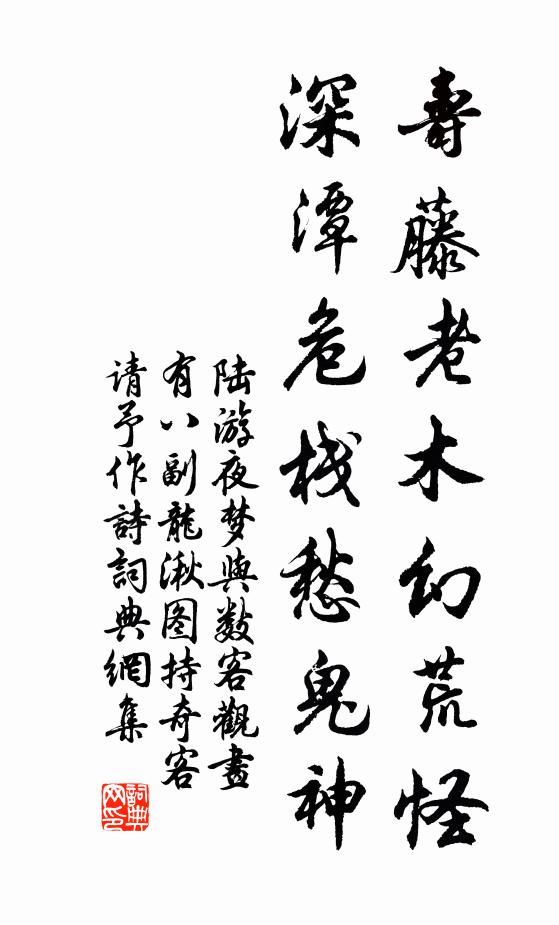 壽藤老木幻荒怪
深潭危栈愁鬼神
陆游夜梦與數客觀畫
有八副龍湫图持奇客
请予作詩詞典網集
詞典网印